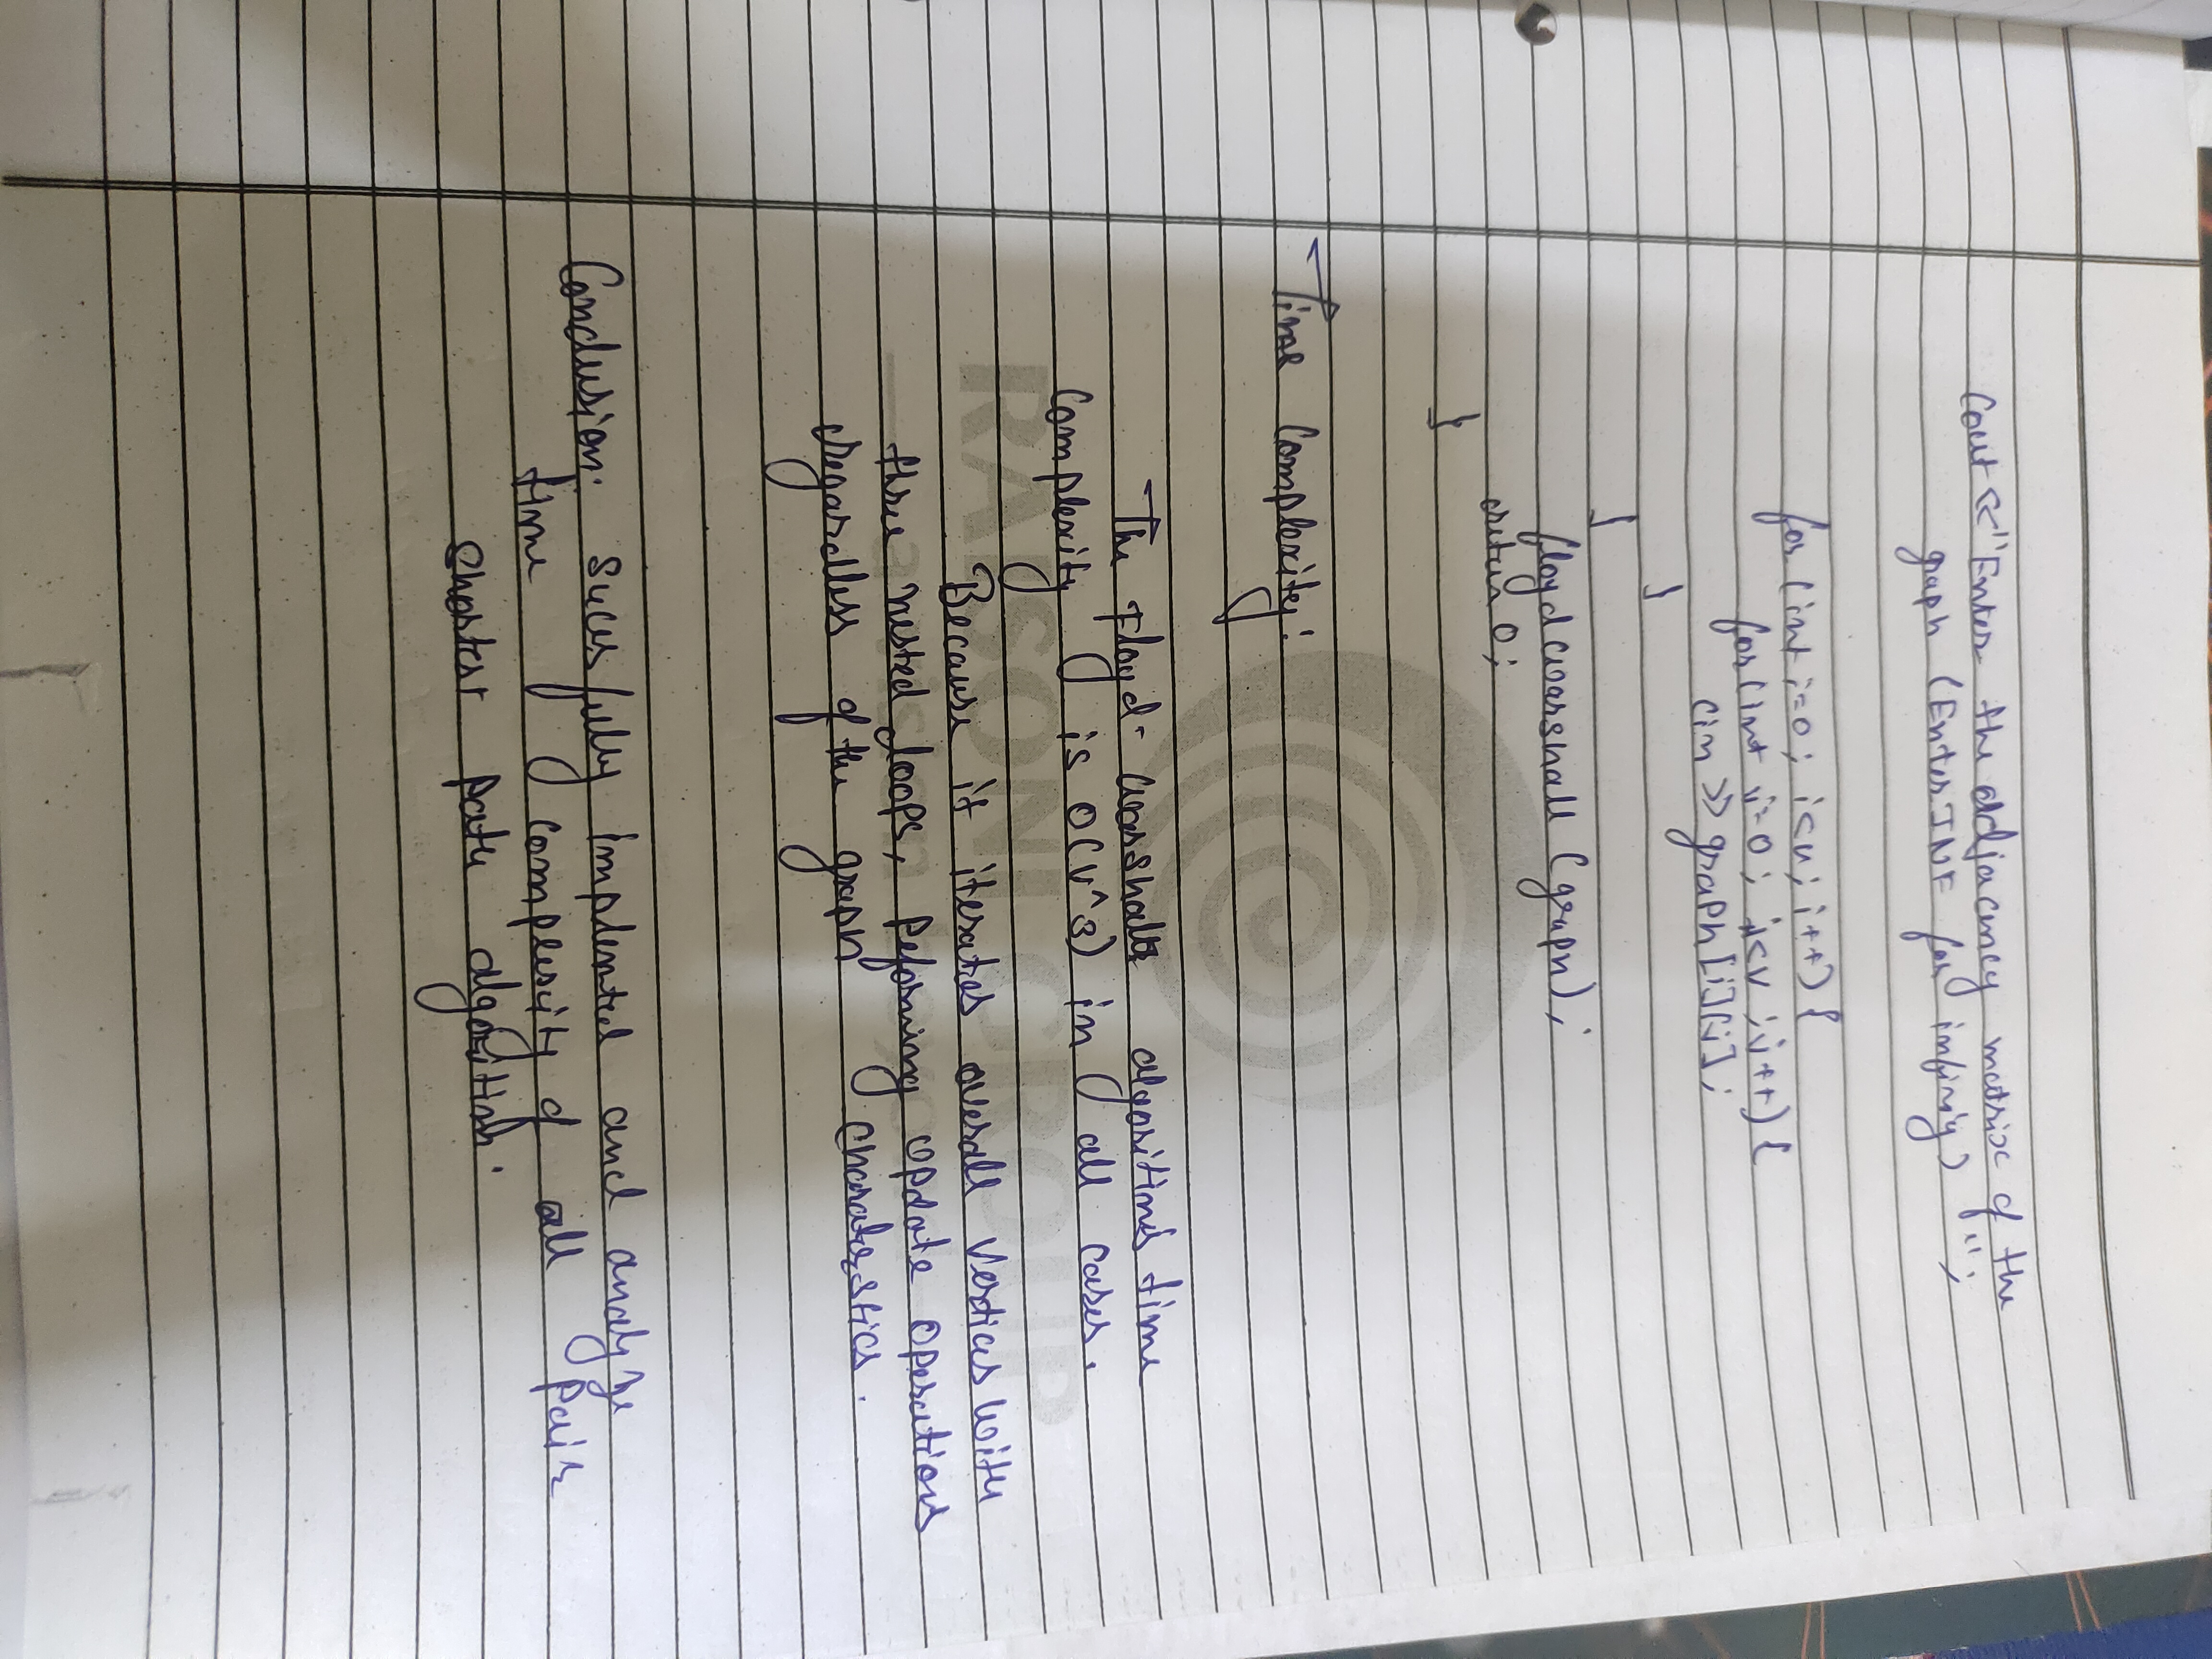 Cout << "Enter the adjacency matrix of the
graph (Enter INF for infiniy) ";
for (int i=0; i<v; i++) {
for (int j=0; j<v; j++) {
cin >> graph[i][j];
}
}
floydwarshall (graph);
return 0;
}
Time Complexity:
The Floyd-Warshall algorithm's time
Complexity is O(V^3) in all cases.
Because it iterates overall vertices with
three nested loops, Peforming update operations
regardless of the graph
RAISONI GROUP
a vision beyond
Conclusion: Sucesfully implemted and analyze
time complexity of all Pair
Shortest Path algorithm.